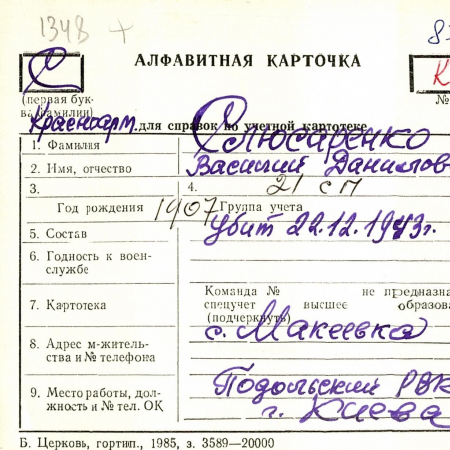 1348 +
АЛФАВИТНАЯ КАРТОЧКА
С
К
(первая бук-
ва фамилии)
№
Красноарм. для справок по учетной картотеке
1. Фамилия Слюсаренко
2. Имя, отчество Василий Данилов
3. 4. 21 сп
Год рождения 1907 Группа учета
5. Состав Убит 22.12.1943г.
6. Годность к воен-
службе
Команда № не предназна
7. Картотека спецучет высшее образова
(подчеркнуть)
с. Макеевка
8. Адрес м-житель-
ства и № телефона
9. Место работы, дол- Подольский РВК
жность и № тел. ОК г. Киева
Б. Церковь, гортип., 1985, з. 3589—20000